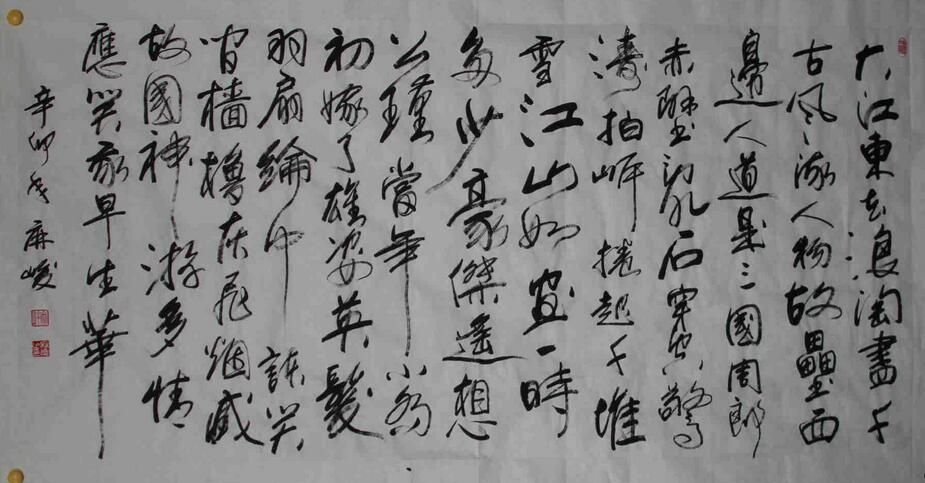 大江東去浪淘盡千
古風流人物故壘西
邊人道是三國周郎
赤壁亂石穿空驚
濤拍岸捲起千堆
雪江山如畫一時
多少豪傑遙想
公瑾當年小喬
初嫁了雄姿英髮
羽扇綸巾談笑
間檣櫓灰飛烟滅
故國神游多情
應笑我早生華
辛卯 麻峻